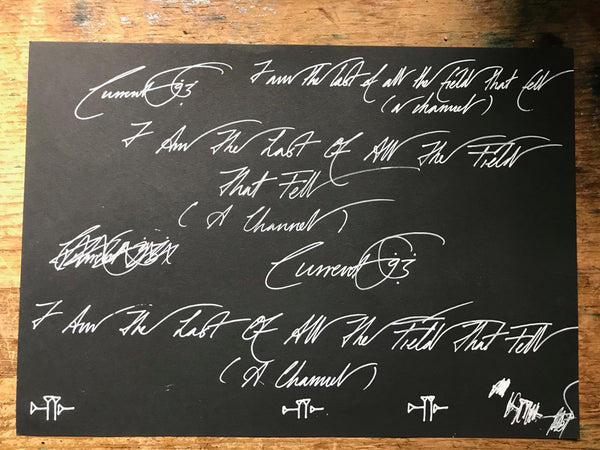 Current 93
I am the last of all the field that fell
(a channel)
I Am The Last Of All The Field
That Fell
(A Channel)
Current 93
I Am The Last Of All The Field That Fell
(A Channel)